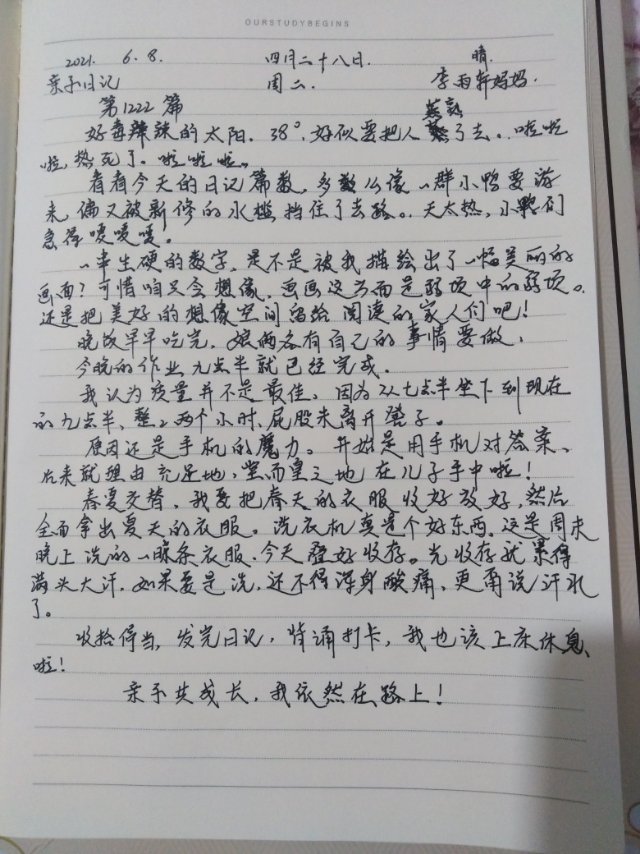 OURSTUDYBEGINS
2021. 6. 8. 四月二十八日. 晴.
亲子日记 周二. 李雨轩妈妈.
第1222篇 蒸熟
好毒辣辣的太阳. 38°, 好似要把人了去. 啦啦
啦, 热死了. 啦啦啦.
看看今天的日记篇数, 多么像一群小鸭要游
来, 偏又被新修的水槛挡住了去路. 天太热, 小鸭们
急得嗄嗄嗄.
一串生硬的数字, 是不是被我描绘出了一幅美丽的
画面? 可惜咱只会想像, 画画这方面是弱项中的弱项.
还是把美好的想像空间留给阅读的家人们吧!
晚饭早早吃完, 娘俩各有自己的事情要做.
今晚的作业九点半就已经完成.
我认为质量并不是最佳. 因为从七点半坐下到现在
的九点半, 整整两个小时, 屁股未离开凳子.
原因还是手机的魔力. 开始是用手机对答案,
后来就理由充足地, 堂而皇之地在儿子手中啦!
春夏交替, 我要把春天的衣服收好放好, 然后
全面拿出夏天的衣服. 洗衣机真是个好东西. 这是周末
晚上洗的一晾条衣服, 今天叠好收存. 光收存就累得
满头大汗, 如果要是洗, 还不得浑身酸痛, 更甭说汗水
了.
收拾得当, 发完日记, 背诵打卡, 我也该上床休息
啦!
亲子共成长, 我依然在路上!